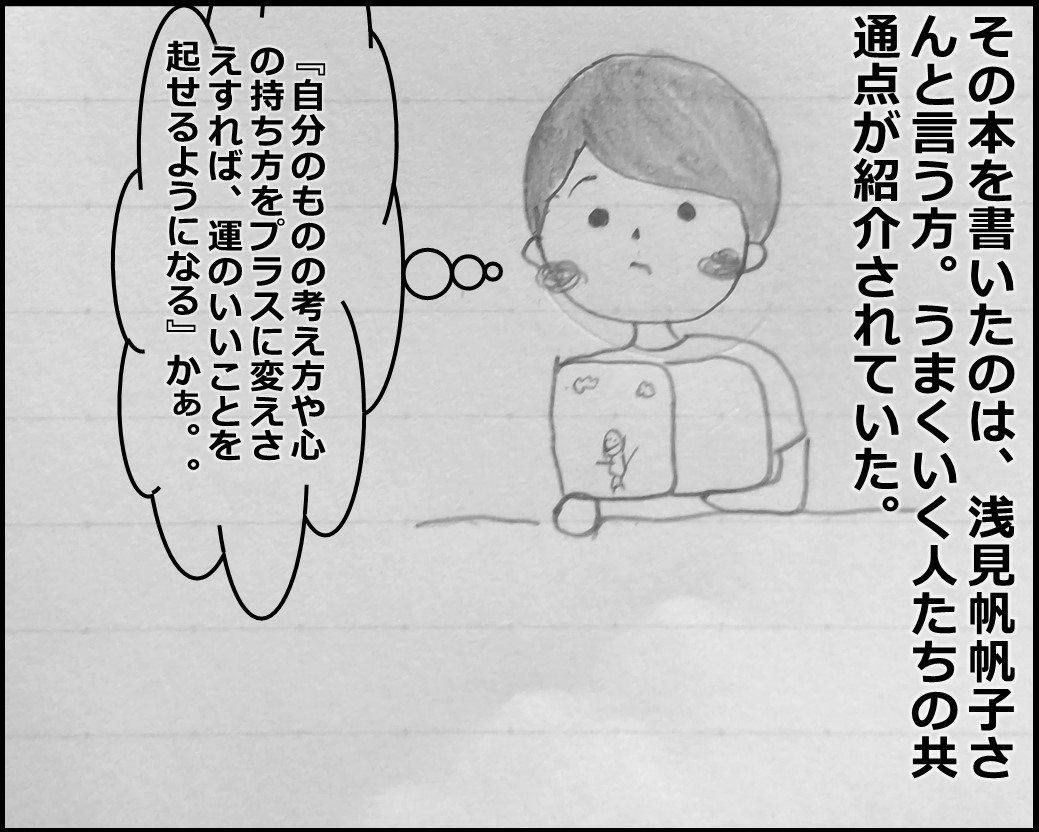 その本を書いたのは、浅見帆帆子さ
んと言う方。うまくいく人たちの共
通点が紹介されていた。
『自分のものの考え方や心
の持ち方をプラスに変えさ
えすれば、運のいいことを
起せるようになる』かぁ。。